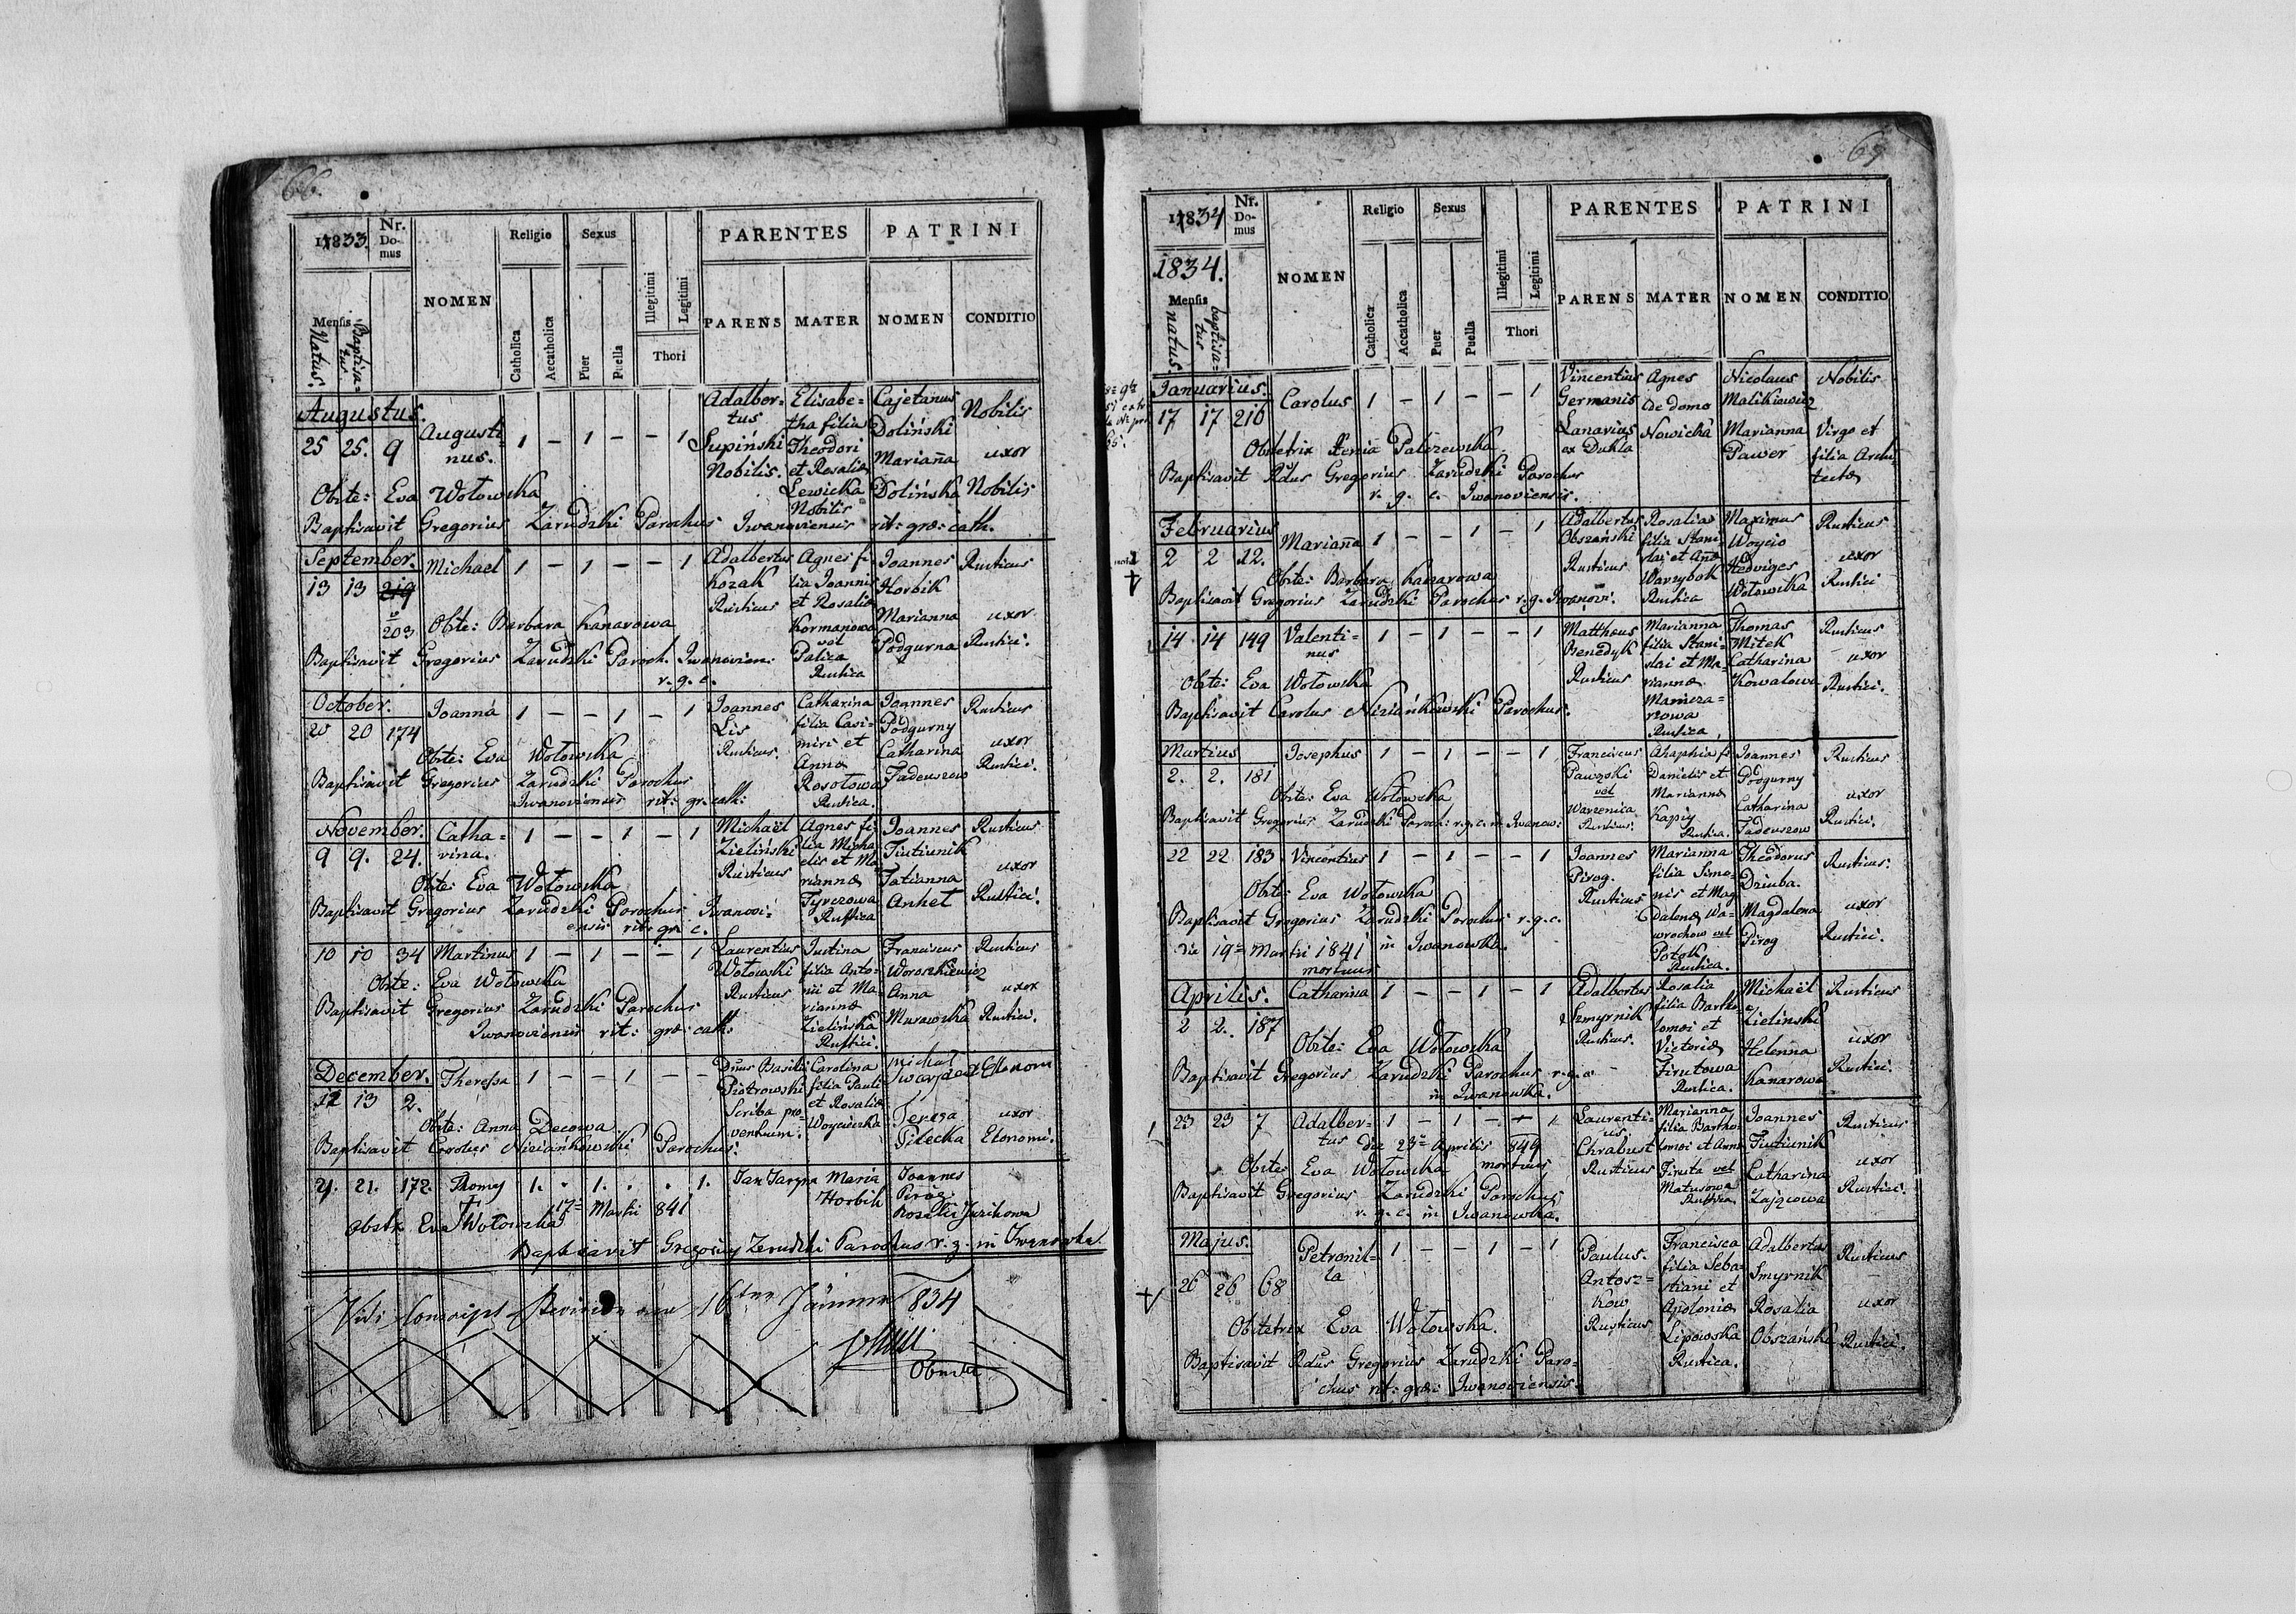 66.
1833.
Nr. Domus
NOMEN
Religio
Sexus
Illegitimi
Legitimi
PARENTES
PATRINI
Mensis
Natus.
Baptisatus.
Catholica
Accatholica
Puer
Puella
Thori
PARENS
MATER
NOMEN
CONDITIO
Augustus
25 25. 9 Augustinus. 1 – 1 – – 1
Adalbertus
Supiński
Nobilis.
Elisabetha filia
Theodori
et Rosaliæ
Lewicka
Nobilis
Cajetanus
Doliński
Marianna
Dolińska
Nobilis
uxor
Nobilis
Obste: Eva Wołowska
Baptisavit Gregorius Zarudzki Parochus Iwanoviensis rit: græ: cath.
September.
13 13 219 203 Michael 1 – 1 – – 1
Adalbertus
Kozak
Rusticus
Agnes fi-
lia Joannis
et Rosaliæ
Kormanowa
vel
Palica
Rustica
Joannes
Horbik
Marianna
Podgurna
Rusticus
uxor
Rustici.
Obste: Barbara Kanarowa
Baptisavit Gregorius Zarudzki Paroch. Iwanovien:
r. g. c.
October.
20 20 174 Joanna 1 – – 1 – 1
Joannes
Lis
Rusticus.
Catharina
filia Casi-
miri et
Annæ
Rosołowa
Rustica.
Joannes
Podgurny
Catharina
Tadeuszow
Rusticus
uxor
Rustici.
Obste: Eva Wołowska
Baptisavit Gregorius Zarudzki Parochus
Iwanoviensis rit: gr: cath:
November.
9 9. 24. Catharina. 1 – – 1 – 1
Michaël
Zieliński
Rusticus
Agnes fi-
lia Micha-
elis et Ma-
riannæ
Tyrczowa
Rustica
Joannes
Tiutiunik
Tatianna
Anhet
Rusticus
uxor
Rustici.
Obste: Eva Wołowska
Baptisavit Gregorius Zarudzki Parochus Iwanovi-
ensis rit: gr: c.
10 10 34 Martinus 1 – 1 – – 1
Laurentius
Wołowski
Rusticus
Justina
filia Anto-
nii et Ma-
riannæ
Zielińska
Rustici.
Franciscus
Woroszkiewicz
Anna
Murawska
Rusticus
uxor
Rustici.
Obste: Eva Wołowska
Baptisavit Gregorius Zarudzki Parochus
Iwanoviensis rit: græ: cath:
December.
12 13 2. Theressa 1 – – 1 – –
Dnus Basili
Piotrowski
Scriba pro-
ventuum.
Carolina
filia Pauli
et Rosaliæ
Woyciecka
Michał
Teresa
Pilecka
Ekonom
uxor
Ekonomi.
Obste: Anna Decowa
Baptisavit Carolus Niziańkowski Parochus.
21. 21. 172. Thomas 1. . 1. . . 1.
Jan Jarema
Maria
Horbik
Joannes
Piróg
Rosalia Juzikowa
17ª Martii 841
Obstx Eva Wołowska
Baptisavit Gregorius Zarudzki Parochus r. g. in Iwanowka.
Vidi 16ten Jänner 834
67
1834
1834.
Nr. Domus
NOMEN
Religio
Sexus
Illegitimi
Legitimi
PARENTES
PATRINI
Mensis
natus.
baptisatus
Catholica
Accatholica
Puer
Puella
Thori
PARENS
MATER
NOMEN
CONDITIO
Januarius.
17 17 210 Carolus 1 – 1 – – 1
Vincentius
Germanis
Lanarius
ex Dukla
Agnes
de domo
Nowicka
Nicolaus
Malikiewicz
Marianna
Pawer
Nobilis
Virgo et
filia Archi-
tectæ
Obstetrix Xenia Palczewska
Baptisavit Rdus Gregorius Zarudzki Parochus
r. g. c. Iwanoviensis.
Februarius
2 2 12. Marianna 1 – – 1 – 1
Adalbertus
Obszański
Rusticus
Rosalia
filia Stani-
slai et Annæ
Warzybok
Rustica
Maximus
Woycio
Hedviges
Wołowska
Rusticus
uxor
Rustici
Obste: Barbara Kanarowa
Baptisavit Gregorius Zarudzki Parochus r. g. Iwanovi.
14 14 149 Valentinus 1 – 1 – – 1
Matthæus
Benedyk
Rusticus
Marianna
filia Stani-
slai et Ma-
riannæ
Mamcza-
rzowa
Rustica
Thomas
Mitek
Catharina
Kowalowa
Rusticus
uxor
Rustici.
Obste: Eva Wołowska
Baptisavit Carolus Niziańkowski Parochus.
Martius
2. 2. 181 Josephus 1 – 1 – – 1
Franciscus
Pawzski
vel
Warzenica
Rusticus.
Ahaphia fi-
Danielis et
Mariannæ
Kapiy
Rustica.
Joannes
Podgurny
Catharina
Tadeuszow
Rusticus
uxor
Rustici.
Obste: Eva Wołowska
Baptisavit Gregorius Zarudzki Paroch: r. g. c. in Iwanow:
22 22 183 Vincentius 1 – 1 – – 1
Joannes
Pirog.
Rusticus
Marianna
filia Simo-
nis et Mag-
dalenæ Wa-
wrochow vel
Potok
Rustica.
Theodorus
Dziuba.
Magdalena
Pirog
Rusticus.
uxor
Rustici.
Obste: Eva Wołowska
Baptisavit Gregorius Zarudzki Parochus r. g. c.
in Iwanowka.
die 19ª Martii 1841
mortuus
Aprilis.
2 2. 187 Catharina 1 – – 1 – 1
Adalbertus
Szmyrnik
Rusticus.
Rosalia
filia Bartho-
lomei et
Victoriæ
Firutowa
Rustica.
Michaël
Zieliński
Helenna
Kanarowa
Rusticus
uxor
Rustici.
Obste: Eva Wołowska
Baptisavit Gregorius Zarudzki Parochus r. g. c.
in Iwanowka.
23 23 7 Adalbertus 1 – 1 – – 1
Laurenti-
us
Chrabust
Rusticus
Marianna
filia Bartho-
lomei et Annæ
Firuta vel
Matusowa
Rustica
Joannes
Tiutiunik
Catharina
Zajzowa
Rusticus
uxor
Rustici.
die 23ª Aprilis 849
mortuus
Obste Eva Wołowska
Baptisavit Gregorius Zarudzki Parochus
r. g. c. in Iwanowka.
Majus.
26 26 68 Petronilla 1 – – 1 – 1
Paulus.
Antosz-
kow
Rusticus
Francisca
filia Seba-
stiani et
Apoloniæ
Lipowska
Rustica.
Adalbertus
Smyrnik
Rosalia
Obszańska
Rusticus
uxor
Rustici.
Obstetrix Eva Wołowska.
Baptisavit Rdus Gregorius Zarudzki Paro-
chus rit: græ: Iwanoviensis.